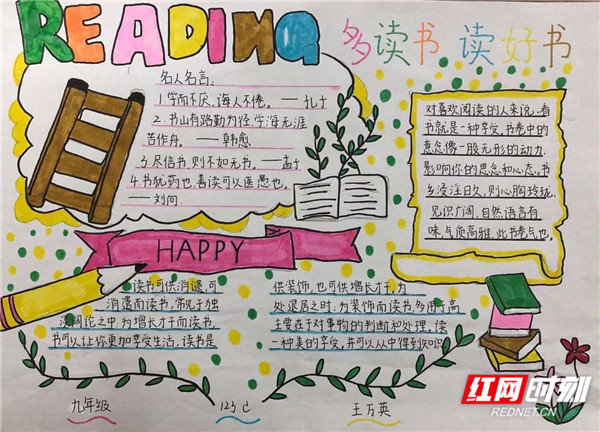 READING
多读书 读好书
名人名言:
1.学而不厌,诲人不倦。——孔子
2.书山有路勤为径,学海无涯
苦作舟。——韩愈
3.尽信书,则不如无书。——孟子
4.书犹药也,善读可以医愚也。
——刘向
对喜欢阅读的人来说,看
书就是一种享受,书卷中的
意念像一股无形的动力,
影响你的思想和心态。书
乡浸注日久,则心胸玲珑,
见识广阔,自然语言有
味,气质高雅,此书卷气也。
HAPPY
读书可供消遣,可
消遣而读书,常见于独
之中,为增长才干而读书,
书可以让你更加享受生活,读书是
供装饰,也可供增长才干,为
处退居之时;为装饰而读书,多用于高
主要在于对事物的判断和处理,读
一种美的享受,并可以从中得到知识
九年级
123
王万英
红网时刻
REDNET.CN